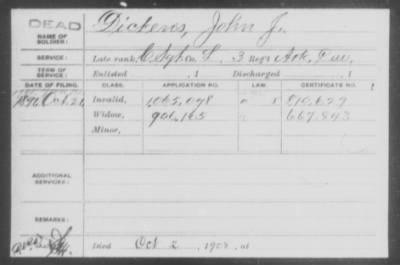 DEAD
NAME OF SOLDIER: Dickens, John J.
SERVICE: Late rank, Co. L, 3 Reg't Ark.
TERM OF SERVICE: Enlisted , 1 Discharged , 1
DATE OF FILING. CLASS. APPLICATION NO. LAW. CERTIFICATE NO.
Oct. Invalid, 1065,098
Widow, 906,165 667,893
Minor,
ADDITIONAL SERVICES:
REMARKS:
Died Oct 2, 1908, at